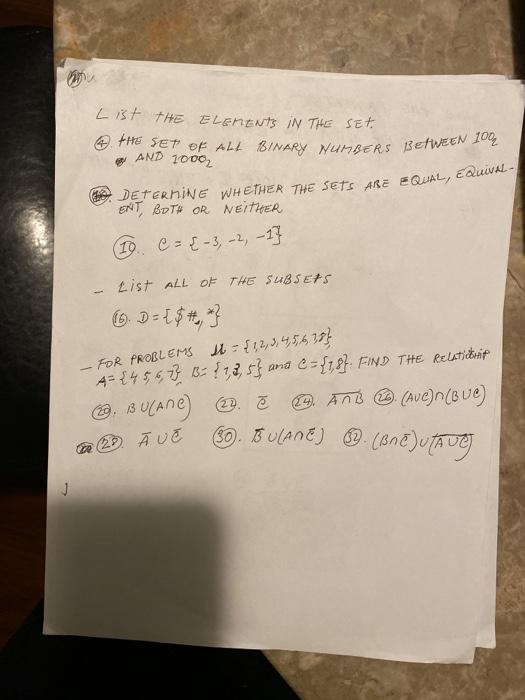 LIST THE ELEMENTS IN THE SET.
④ THE SET OF ALL BINARY NUMBERS BETWEEN 100₂
AND 1000₂
DETERMINE WHETHER THE SETS ARE EQUAL, EQUIVAL-
ENT, BOTH OR NEITHER
⑩. C = {-3, -2, -1}
- LIST ALL OF THE SUBSETS
⑯. D = {$ #, *}
- FOR PROBLEMS U = {1,2,3,4,5,6,7,8}
A = {4 5, 6, 7}, B = {1,3, 5} and C = {7,8}. FIND THE RELATIONSHIP
⑳. B∪(A∩C) ㉒. C̅ ㉔. A̅∩B ㉖. (A∪C)∩(B∪C)
㉘. A̅ ∪ C̅ ㉚. B̅∪(A∩C̅) ㉜. (B∩C̅)∪(A̅∪̅C̅)